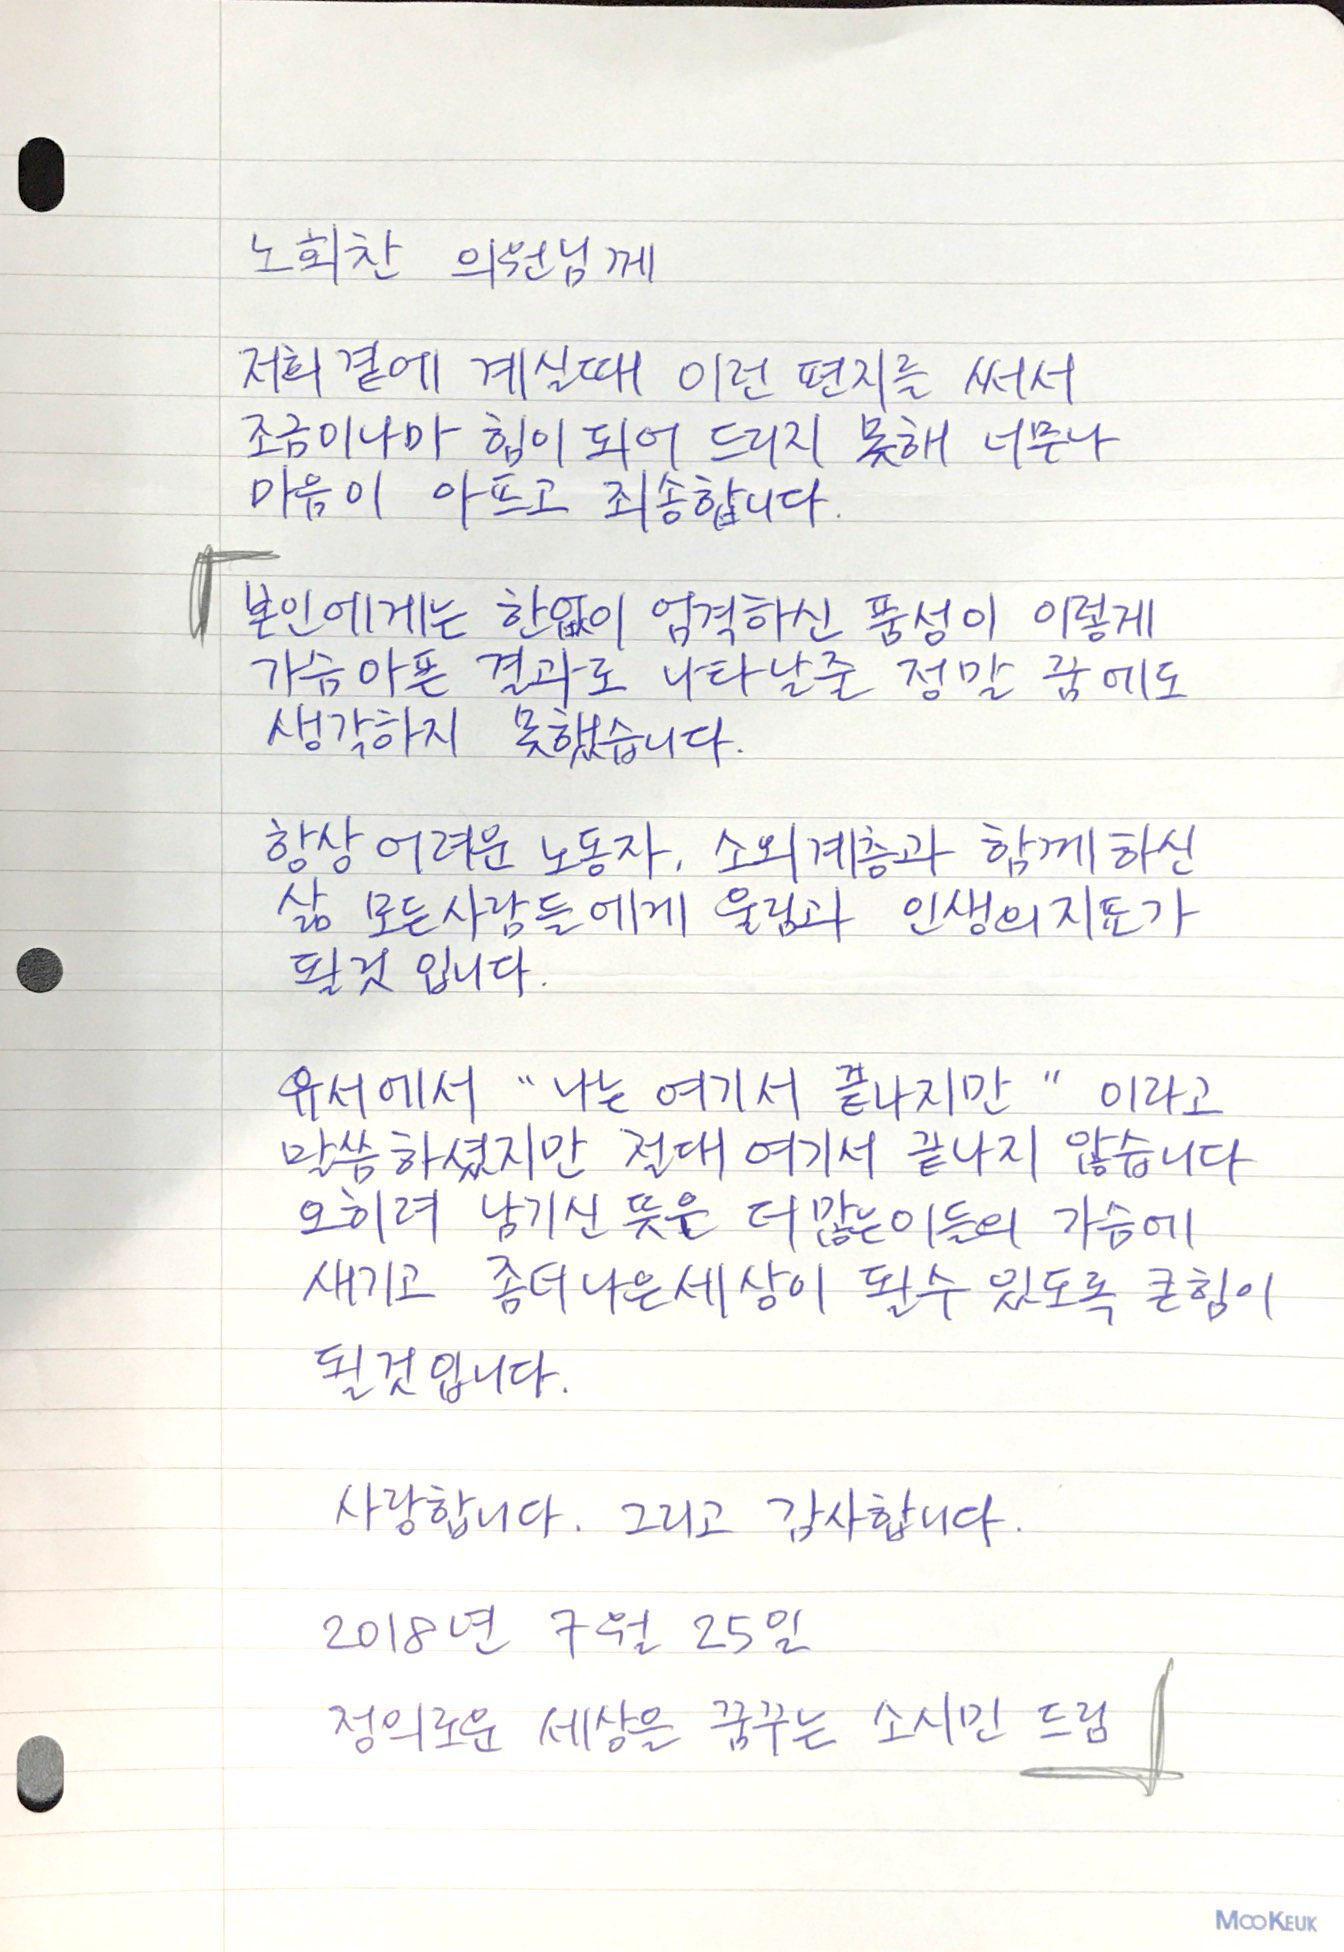 노회찬 의원님께
저희 곁에 계실때 이런 편지를 써서
조금이나마 힘이 되어 드리지 못해 너무나
마음이 아프고 죄송합니다.
본인에게는 한없이 엄격하신 품성이 이렇게
가슴아픈 결과로 나타날줄 정말 꿈에도
생각하지 못했습니다.
항상 어려운 노동자, 소외계층과 함께하신
삶 모든사람들에게 울림과 인생의지표가
될것 입니다.
유서에서 "나는 여기서 끝나지만" 이라고
말씀하셨지만 절대 여기서 끝나지 않습니다
오히려 남기신 뜻은 더많은이들의 가슴에
새기고 좀더나은세상이 될수 있도록 큰힘이
될것입니다.
사랑합니다. 그리고 감사합니다.
2018년 7월 25일
정의로운 세상을 꿈꾸는 소시민 드림
MOOKEUK